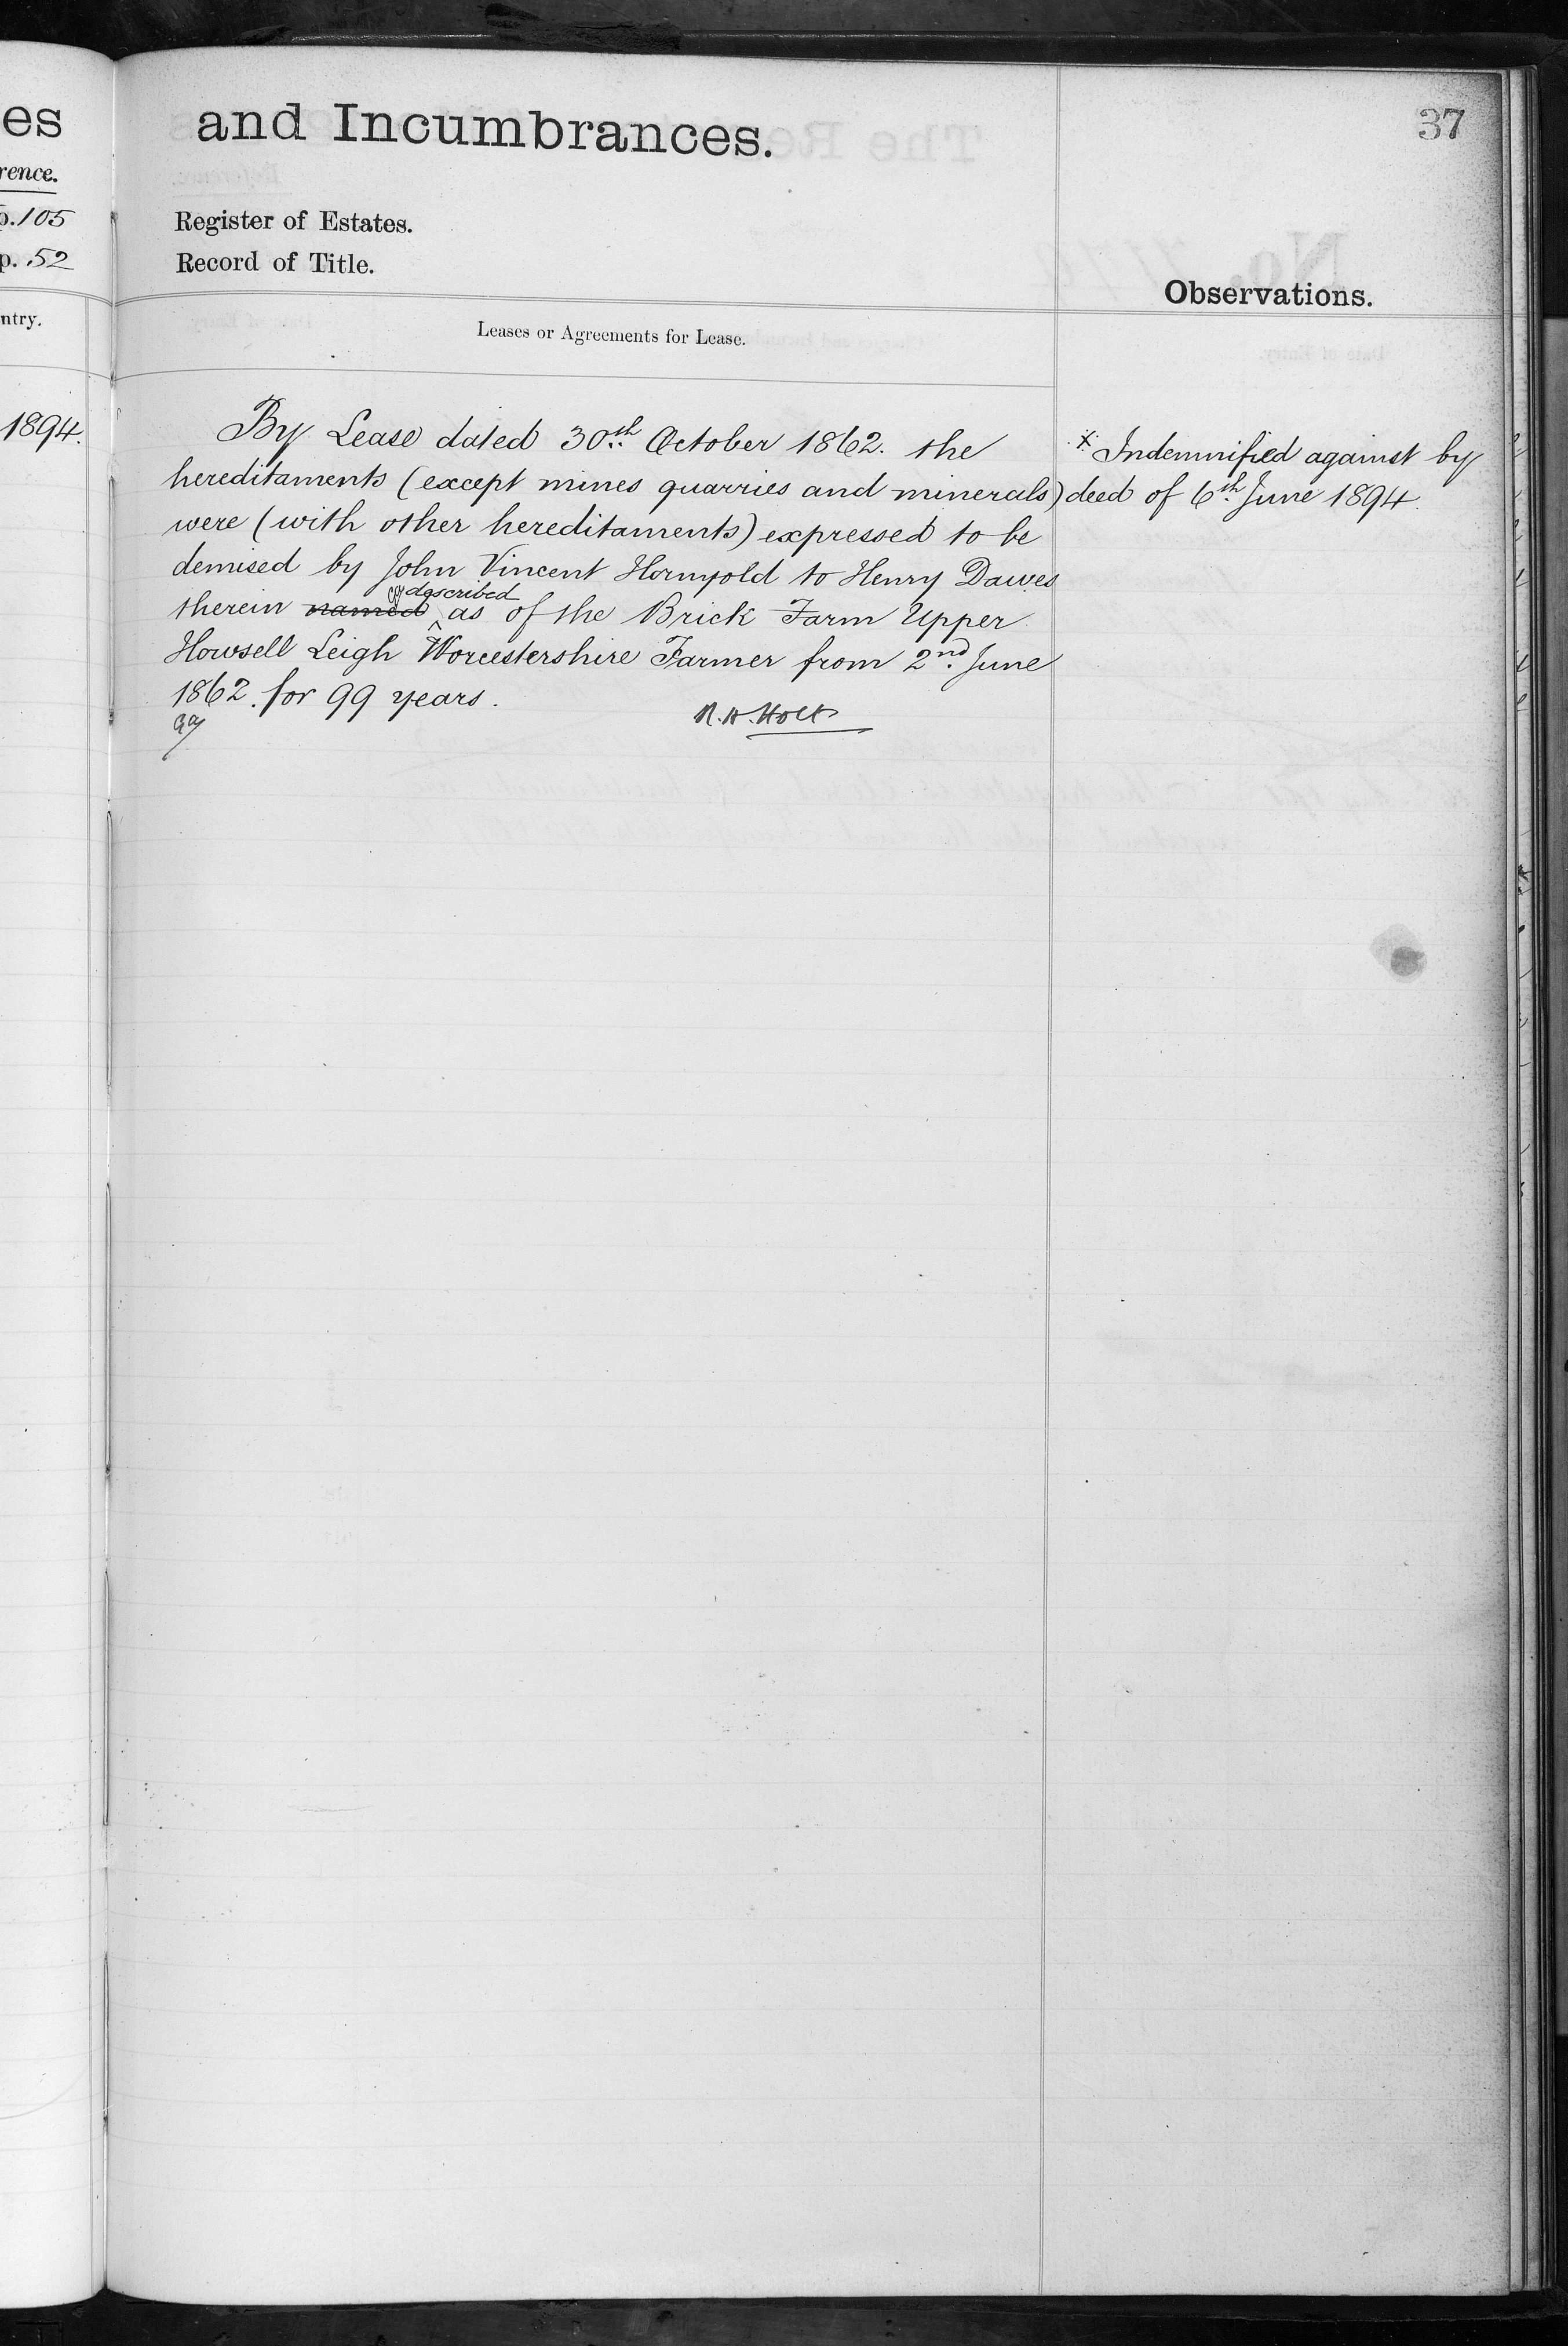 es
rence.
p. 105
p. 52
ntry.
1894.
and Incumbrances.
37
Register of Estates.
Record of Title.
Observations.
Leases or Agreements for Lease.
By Lease dated 30th October 1862. the
hereditaments (except mines quarries and minerals)
were (with other hereditaments) expressed to be
demised by John Vincent Hornyold to Henry Dawes
described
therein named as of the Brick Farm Upper
Howsell Leigh Worcestershire Farmer from 2nd June
1862. for 99 years.
Holt
x Indemnified against by
deed of 6th June 1894.